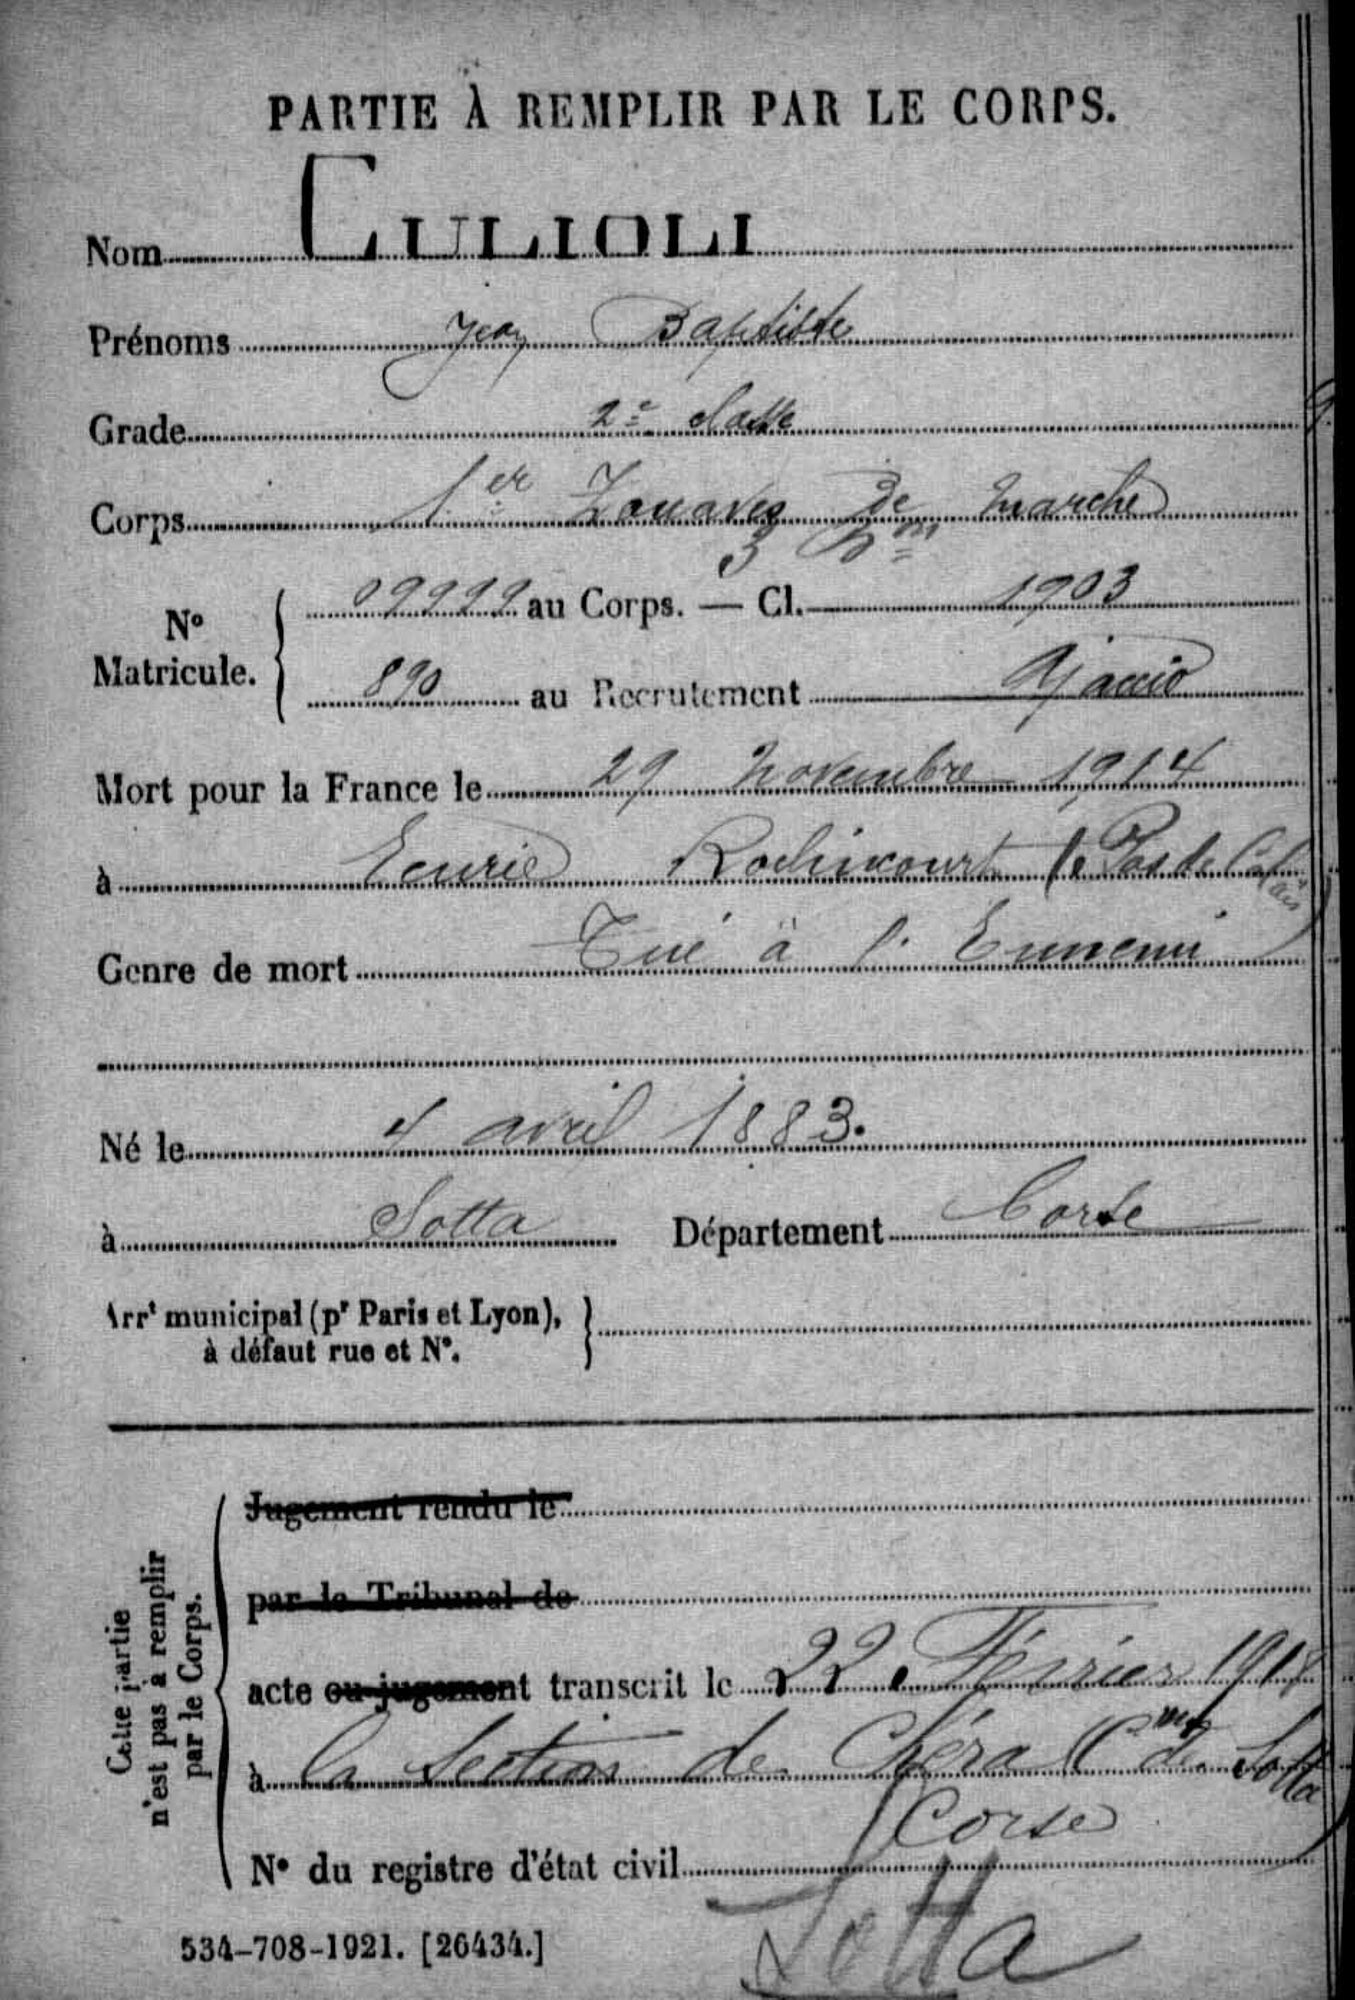 PARTIE À REMPLIR PAR LE CORPS.
Nom CULIOLI
Prénoms Jean Baptiste
Grade 2e classe
Corps 1er Zouaves de marche
3 Bon
No Matricule. { 09999 au Corps. — Cl. 1903
890 au Recrutement Ajaccio
Mort pour la France le 29 novembre 1914
à Ecurie Rochincourt (Pas de Calais)
Genre de mort Tué à l'Ennemi
Né le 4 avril 1883.
à Sotta Département Corse
Arrt municipal (pr Paris et Lyon),
à défaut rue et No. }
Cette partie
n'est pas à remplir
par le Corps.
Jugement rendu le
par le Tribunal de
acte ou jugement transcrit le 22 Février
à la Section de Chéra (Cne de Sotta
Corse)
No du registre d'état civil
Sotta
534-708-1921. [26434.]